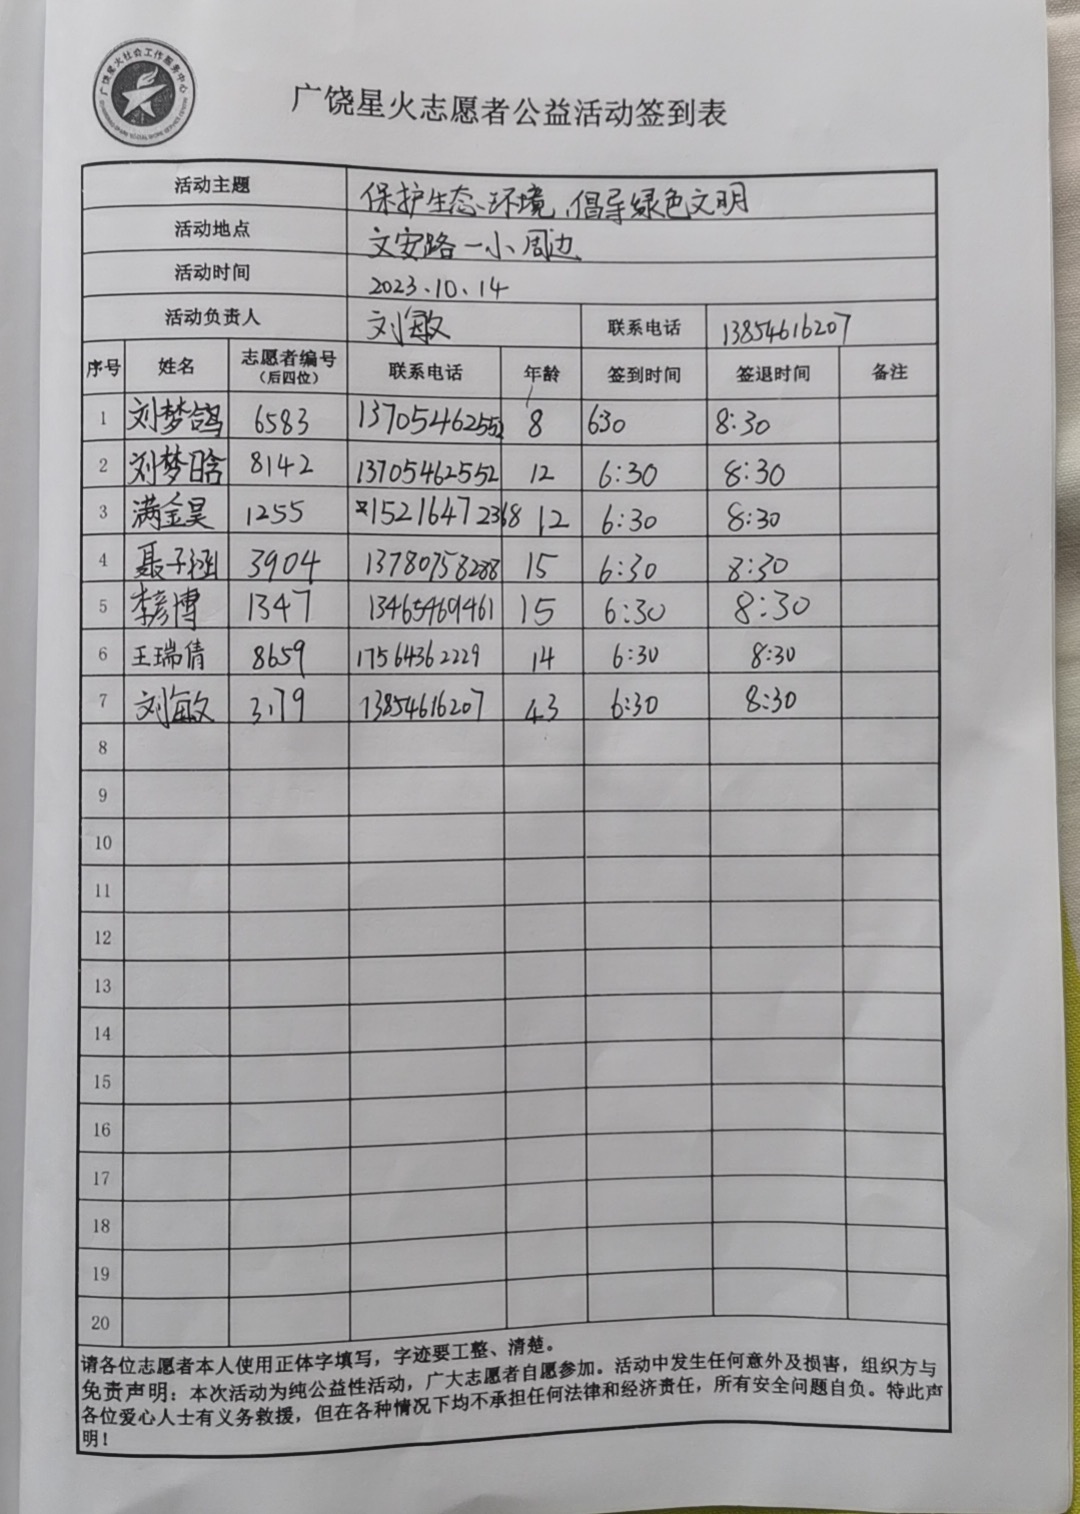 广饶星火社会工作服务中心
广饶星火志愿者公益活动签到表
活动主题 保护生态环境、倡导绿色文明
活动地点 文安路一小周边
活动时间 2023.10.14
活动负责人 刘敏 联系电话 13854616207
序号 姓名 志愿者编号（后四位） 联系电话 年龄 签到时间 签退时间 备注
1 刘梦鸽 6583 13705462552 8 630 8:30
2 刘梦晗 8142 13705462552 12 6:30 8:30
3 满金昊 1255 15216472368 12 6:30 8:30
4 聂子涵 3904 13780758288 15 6:30 8:30
5 李彦博 1347 13465469461 15 6:30 8:30
6 王瑞倩 8659 17564362229 14 6:30 8:30
7 刘敏 3179 13854616207 43 6:30 8:30
8
9
10
11
12
13
14
15
16
17
18
19
20
请各位志愿者本人使用正体字填写，字迹要工整、清楚。
免责声明：本次活动为纯公益性活动，广大志愿者自愿参加。活动中发生任何意外及损害，组织方与
各位爱心人士有义务救援，但在各种情况下均不承担任何法律和经济责任，所有安全问题自负。特此声
明！